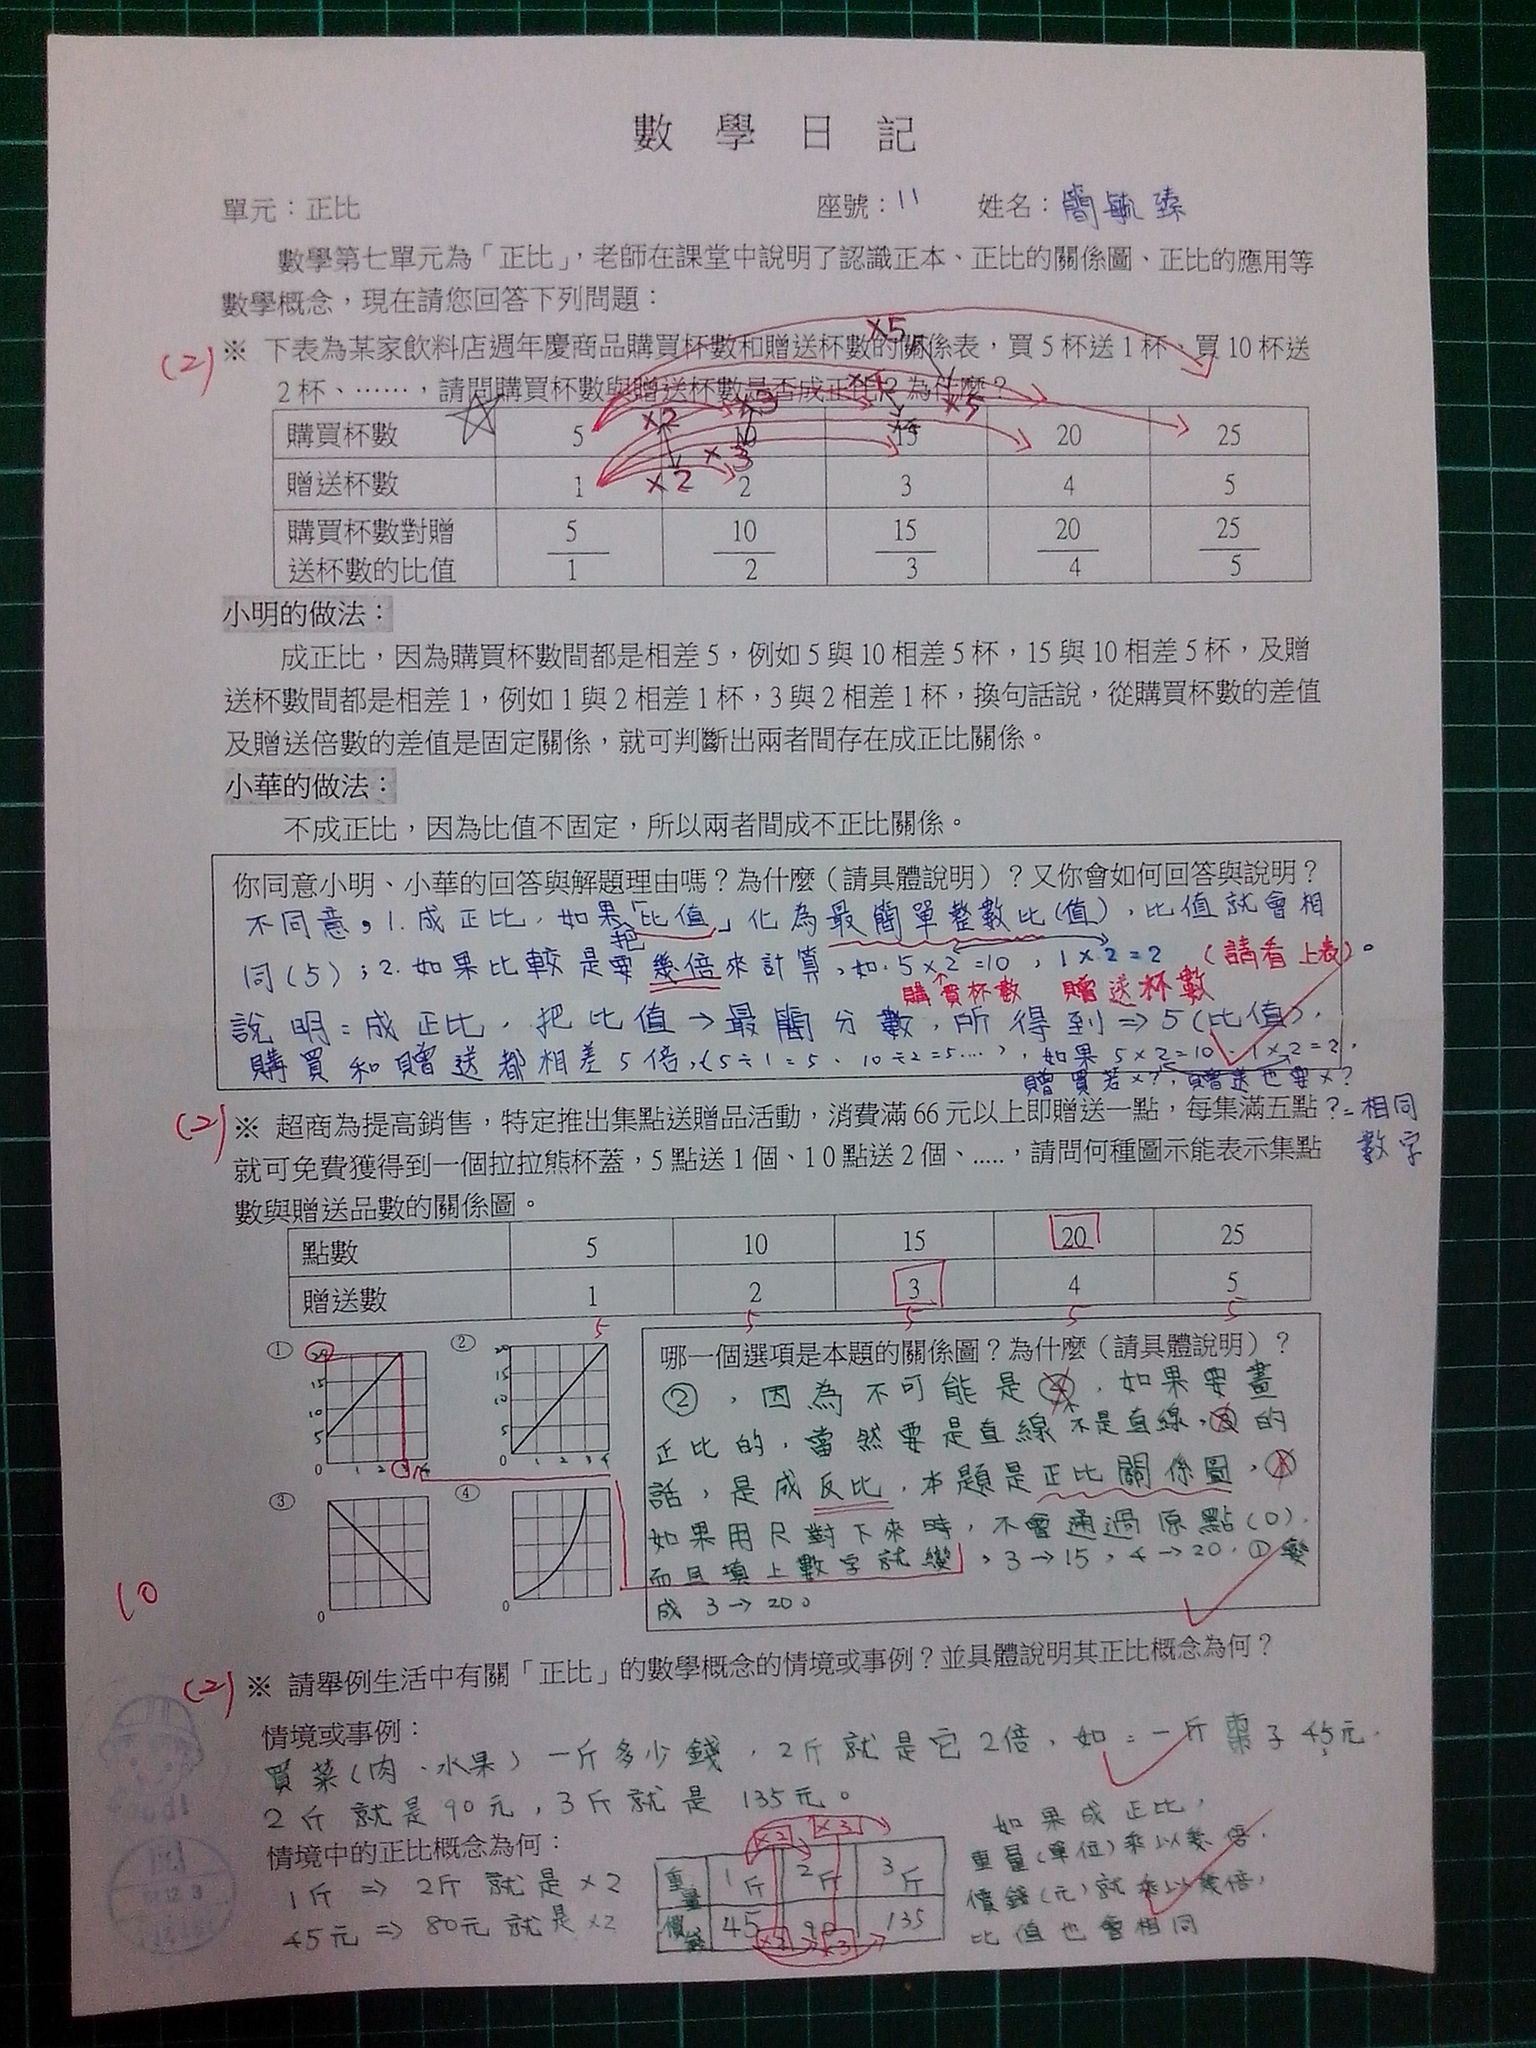 數 學 日 記
單元：正比 座號：11 姓名：簡毓臻
數學第七單元為「正比」，老師在課堂中說明了認識正本、正比的關係圖、正比的應用等
數學概念，現在請您回答下列問題：
(2) ※ 下表為某家飲料店週年慶商品購買杯數和贈送杯數的關係表，買 5 杯送 1 杯、買 10 杯送
2 杯、……，請問購買杯數與贈送杯數是否成正比？為什麼？
×5
×2 ×3 ×4 ×5
購買杯數 5 10 15 20 25
×2 ×3
贈送杯數 1 2 3 4 5
購買杯數對贈 5 10 15 20 25
送杯數的比值 1 2 3 4 5
小明的做法：
成正比，因為購買杯數間都是相差 5，例如 5 與 10 相差 5 杯，15 與 10 相差 5 杯，及贈
送杯數間都是相差 1，例如 1 與 2 相差 1 杯，3 與 2 相差 1 杯，換句話說，從購買杯數的差值
及贈送倍數的差值是固定關係，就可判斷出兩者間存在成正比關係。
小華的做法：
不成正比，因為比值不固定，所以兩者間成不正比關係。
你同意小明、小華的回答與解題理由嗎？為什麼（請具體說明）？又你會如何回答與說明？
不同意。1.成正比，如果「比值」化為最簡單整數比(值)，比值就會相
把
同(5)；2.如果比較是要幾倍來計算，如：5×2=10，1×2=2 (請看上表)。
購買杯數 贈送杯數
說明：成正比，把比值→最簡分數，所得到⇒5(比值)，
購買和贈送都相差5倍，(5÷1=5、10÷2=5....)，如果5×2=10、1×2=2，
贈買若×?，贈送也要×?
?=相同
數字
(2) ※ 超商為提高銷售，特定推出集點送贈品活動，消費滿 66 元以上即贈送一點，每集滿五點
就可免費獲得到一個拉拉熊杯蓋，5 點送 1 個、10 點送 2 個、.....，請問何種圖示能表示集點
數與贈送品數的關係圖。
點數 5 10 15 20 25
贈送數 1 2 3 4 5
5 5 5 5 5
① 20 15 10 5 0 1 2 3 4
② 20 15 10 5 0 1 2 3 4
③ 0
④ 0
哪一個選項是本題的關係圖？為什麼（請具體說明）？
②，因為不可能是④，如果要畫
正比的，當然要是直線不是直線，③的
話，是成反比，本題是正比關係圖，①
如果用尺對下來時，不會通過原點(0)，
而且填上數字就變，3→15，4→20，①變
成 3→20。
10
(2) ※ 請舉例生活中有關「正比」的數學概念的情境或事例？並具體說明其正比概念為何？
情境或事例：
買菜(肉、水果)一斤多少錢，2斤就是它2倍，如：一斤棗子45元，
2斤就是90元，3斤就是135元。
情境中的正比概念為何：
1斤 ⇒ 2斤 就是×2
45元 ⇒ 80元 就是×2
×2 ×3
重量 1斤 2斤 3斤
價錢 45 90 135
×2 ×3
如果成正比，
重量(單位)乘以幾倍，
價錢(元)就乘以幾倍，
比值也會相同